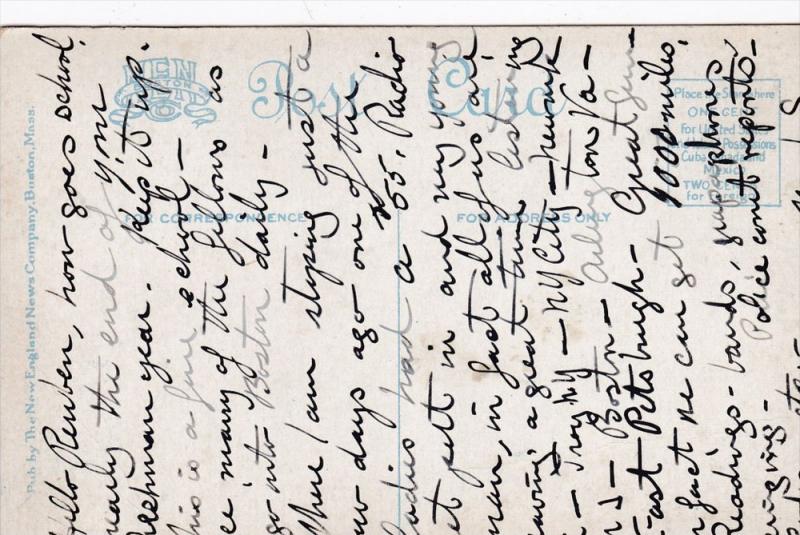 Hello Reuben, how goes school,
nearly the end of your
Freshman year. keep it up.
This is a fine school —
see many of the fellows as
go into Boston daily —
Where I am stoping just a
few days ago one of the
ladies had a $55. Radio
set put in and my young
man, in fact all of us are
having a great time listening
— Troy NY — NY City — Newark
Boston — Arlington Va —
East Pitsburgh — Great fun —
in fact we can get 1000 miles.
Readings — bands, graphophones
singing — Police court reports —
Post Card
FOR CORRESPONDENCE
FOR ADDRESS ONLY
Place Stamp Here
ONE CENT
for United States
and Island Possessions
Cuba, Canada and
Mexico
TWO CENTS
for Foreign
Pub by The New England News Company, Boston, Mass.